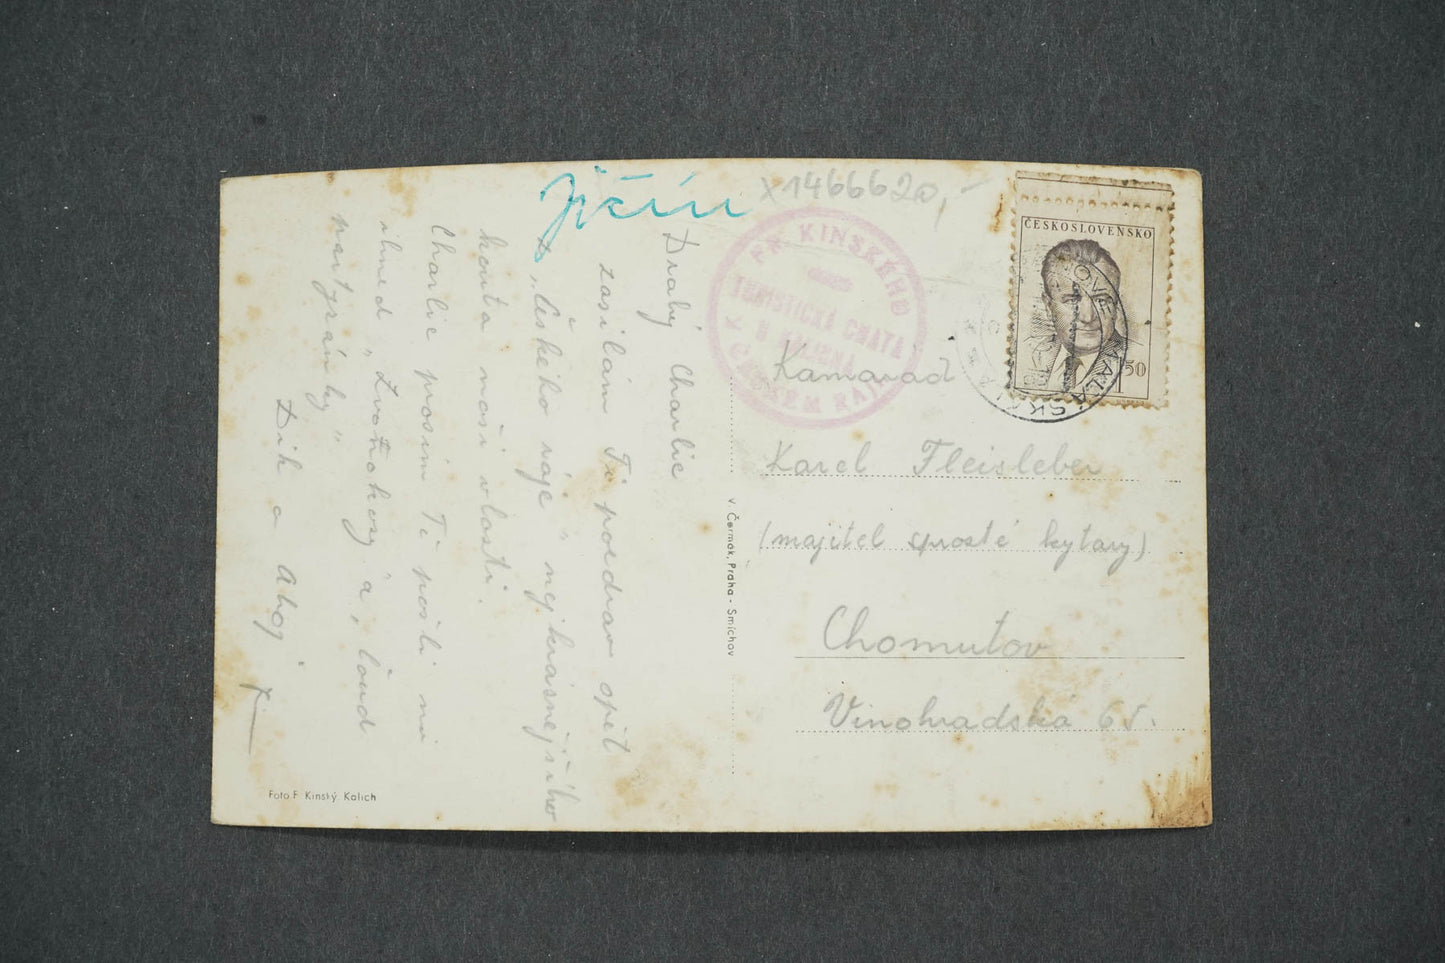 Jičín
x1466620,-
Drahý Charlie
zasílám Ti pozdrav opět
z „Českého ráje" nejkrásnějšího
kouta naší vlasti.
Charlie prosím Tě pošli mi
ihned „Zvotrohory a, soud
nad
Dík a Ahoj
Foto F. Kinský, Kalich
V. Čermák, Praha - Smíchov
FR. KINSKÉHO
TURISTICKÁ CHATA
U
ČESKÉM RÁJI
ČESKOSLOVENSKO
1,50
MALÁ SKÁLA
Kamarád
Karel Fleisleber
(majitel sprosté kytary)
Chomutov
Vinohradská 65.